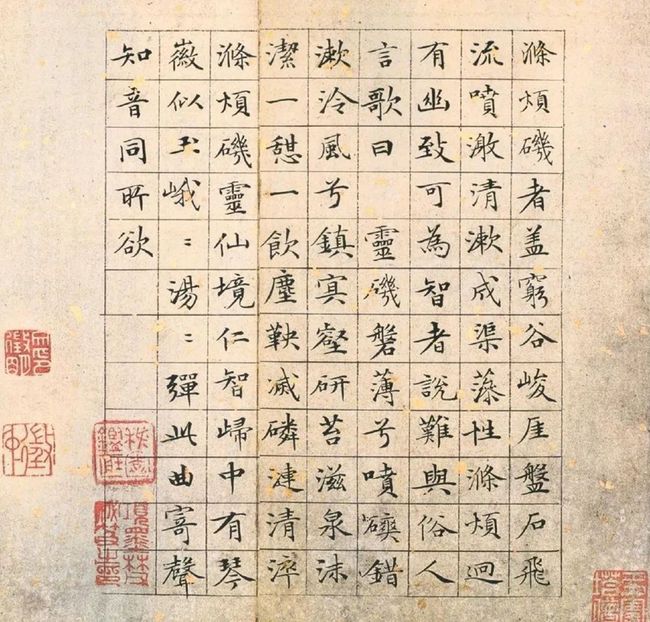 滌煩磯者盖窮谷峻厓盤石飛
流噴激清漱成渠藻性滌煩迥
有幽致可為智者說難與俗人
言歌曰 靈磯磐薄兮噴磢錯
漱泠風兮鎮冥壑研苔滋泉沫
潔一憩一飲塵鞅滅磷漣清淬
滌煩磯靈仙境仁智歸中有琴
徽似玉峨〻湯〻彈此曲寄聲
知音同所欲